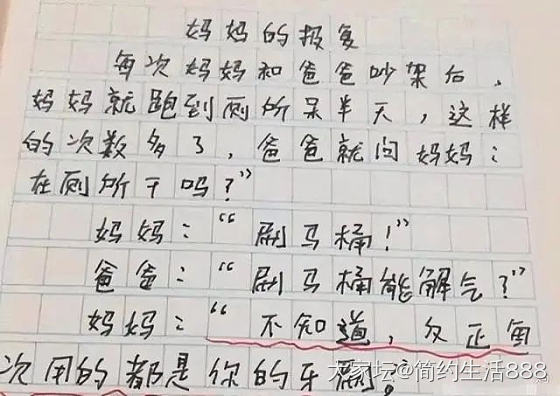 妈妈的报复
每次妈妈和爸爸吵架后,
妈妈就跑到厕所呆半天,这样
的次数多了,爸爸就问妈妈:
在厕所干吗?”
妈妈:“刷马桶!”
爸爸:“刷马桶能解气?”
妈妈:“不知道,反正每
次用的都是你的牙刷。
大家坛@简约生活888